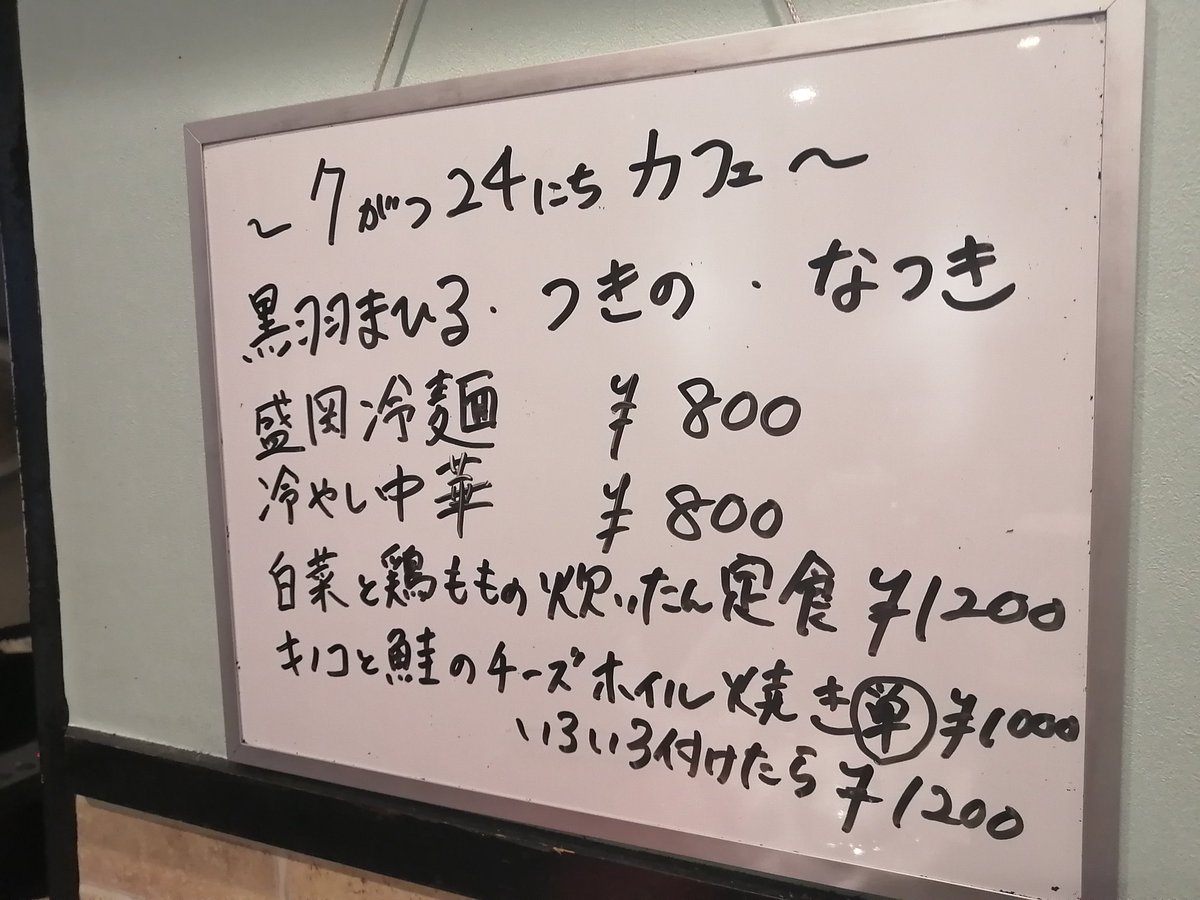 ～7がつ24にちカフェ～
黒羽まひる・つきの・なつき
盛岡冷麺 ¥800
冷やし中華 ¥800
白菜と鶏ももの炊いたん定食 ¥1200
キノコと鮭のチーズホイル焼き単 ¥1000
いろいろ付けたら ¥1200